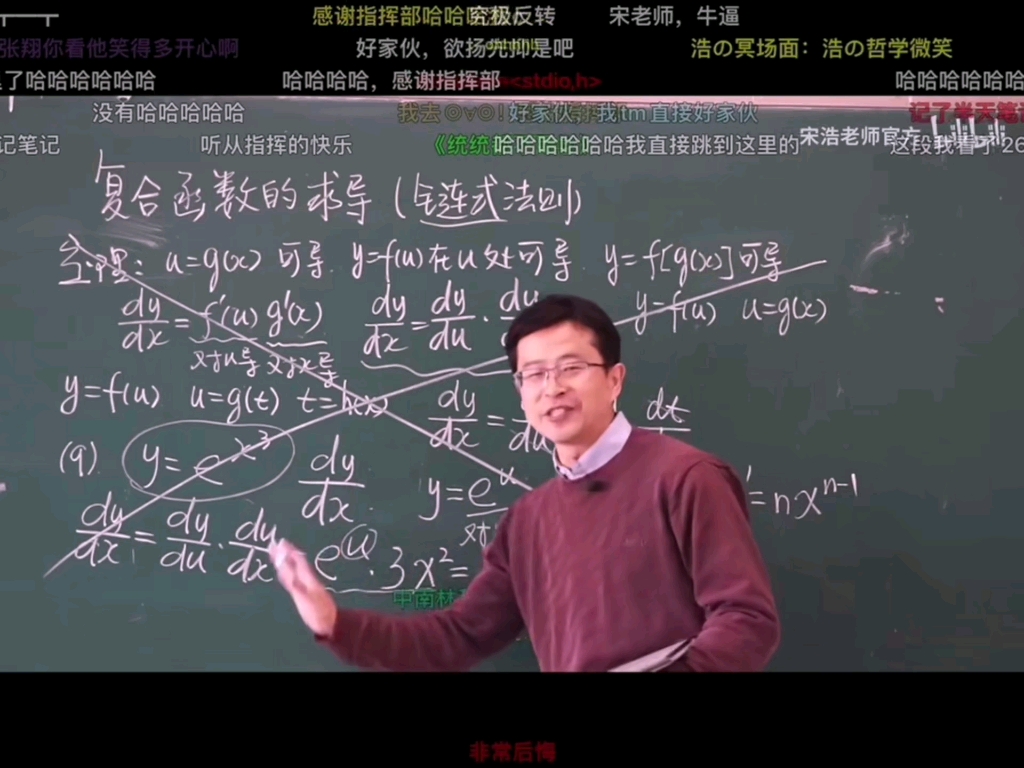 感谢指挥部哈哈
究极反转
宋老师，牛逼
张翔你看他笑得多开心啊
好家伙，欲扬先抑是吧
浩の冥场面：浩の哲学微笑
了哈哈哈哈哈哈哈
哈哈哈哈，感谢指挥部
<stdio.h>
哈哈哈哈哈哈
没有哈哈哈哈哈
我去⊙v⊙！
好家伙
我tm直接好家伙
记了半天笔
记笔记
听从指挥的快乐
《统统
哈哈哈哈哈哈我直接跳到这里的
宋浩老师官方
bilibili
这段我看了26
复合函数的求导（链式法则）
定理：u=g(x)可导 y=f(u)在u处可导 y=f[g(x)]可导
dy/dx = f'(u) g'(x) dy/dx = dy/du · du y=f(u) u=g(x)
对u导 对x导
y=f(u) u=g(t) t=h(x) dy/dx = du dt
(9) y=e^{x^3} dy/dx y=e^u '=nx^{n-1}
dy/dx = dy/du · du/dx = e^u · 3x^2 =
对
中南林
非常后悔